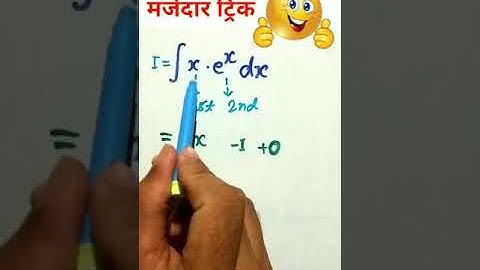 मजेदार ट्रिक
I = ∫ x · e^x dx
2nd
= x -1 +0